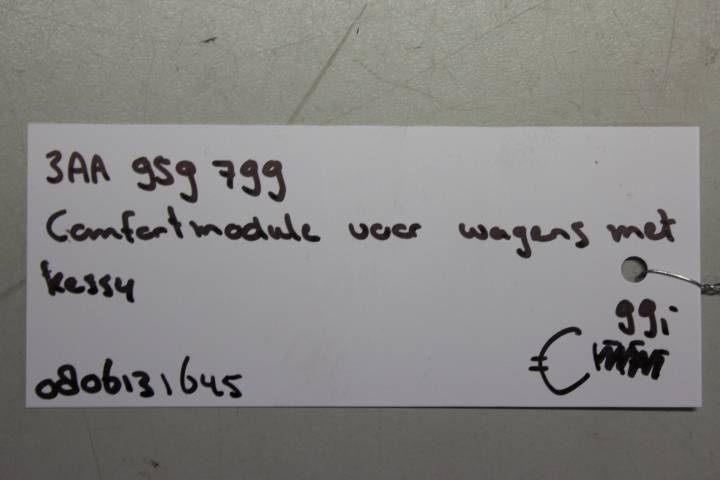 3AA 959 799
Comfortmodule voor wagens met
kessy
99,-
€
0806131645